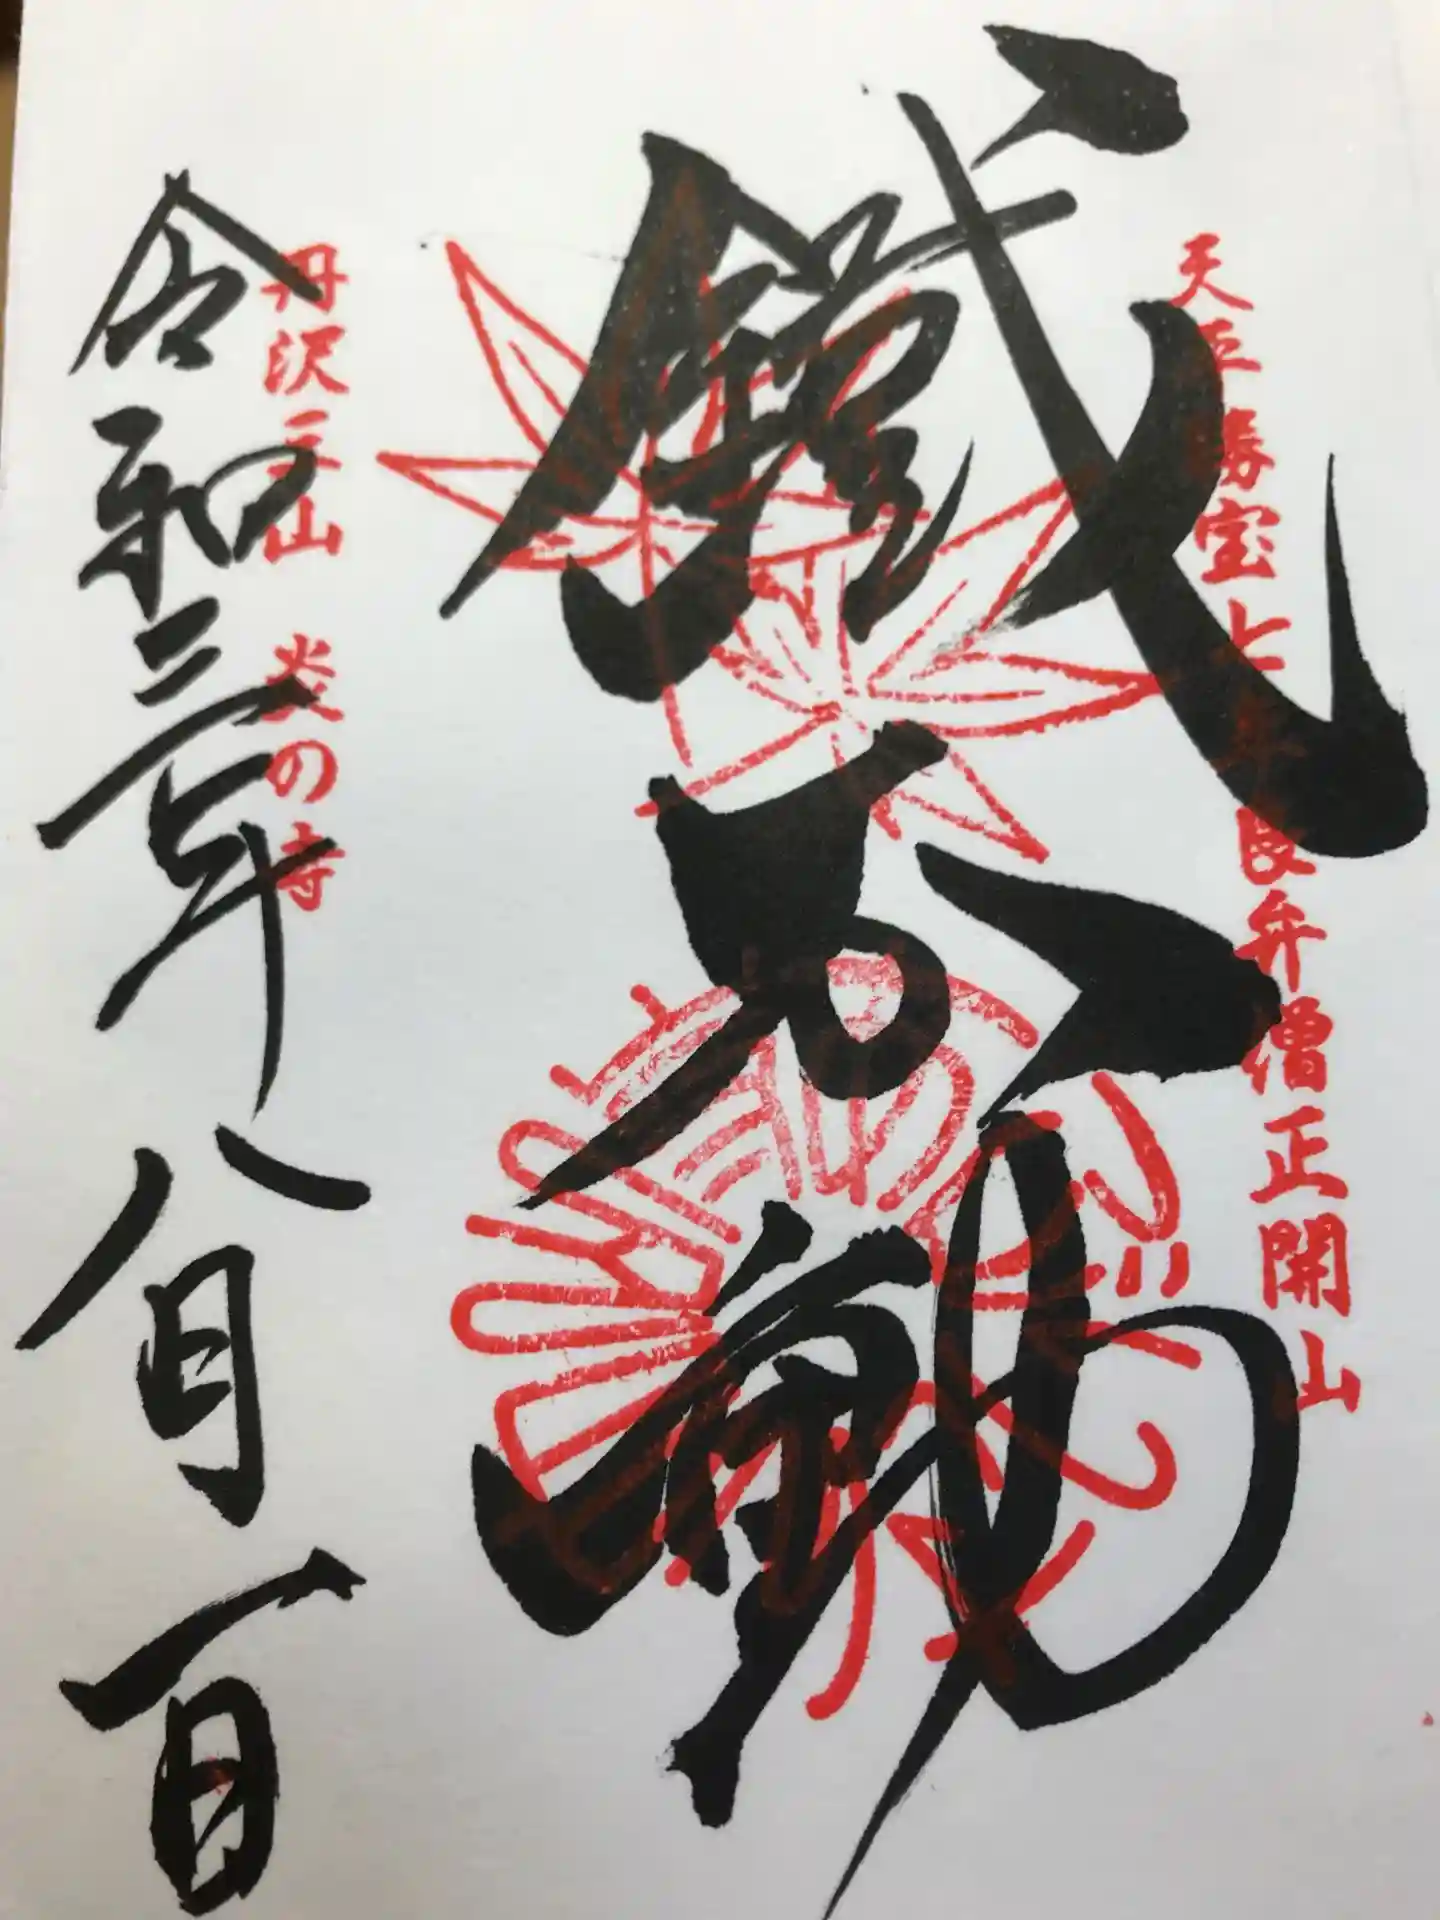 天平勝宝七年良弁僧正開山
鐡不動
丹沢三山 炎の寺
令和三年八月一日